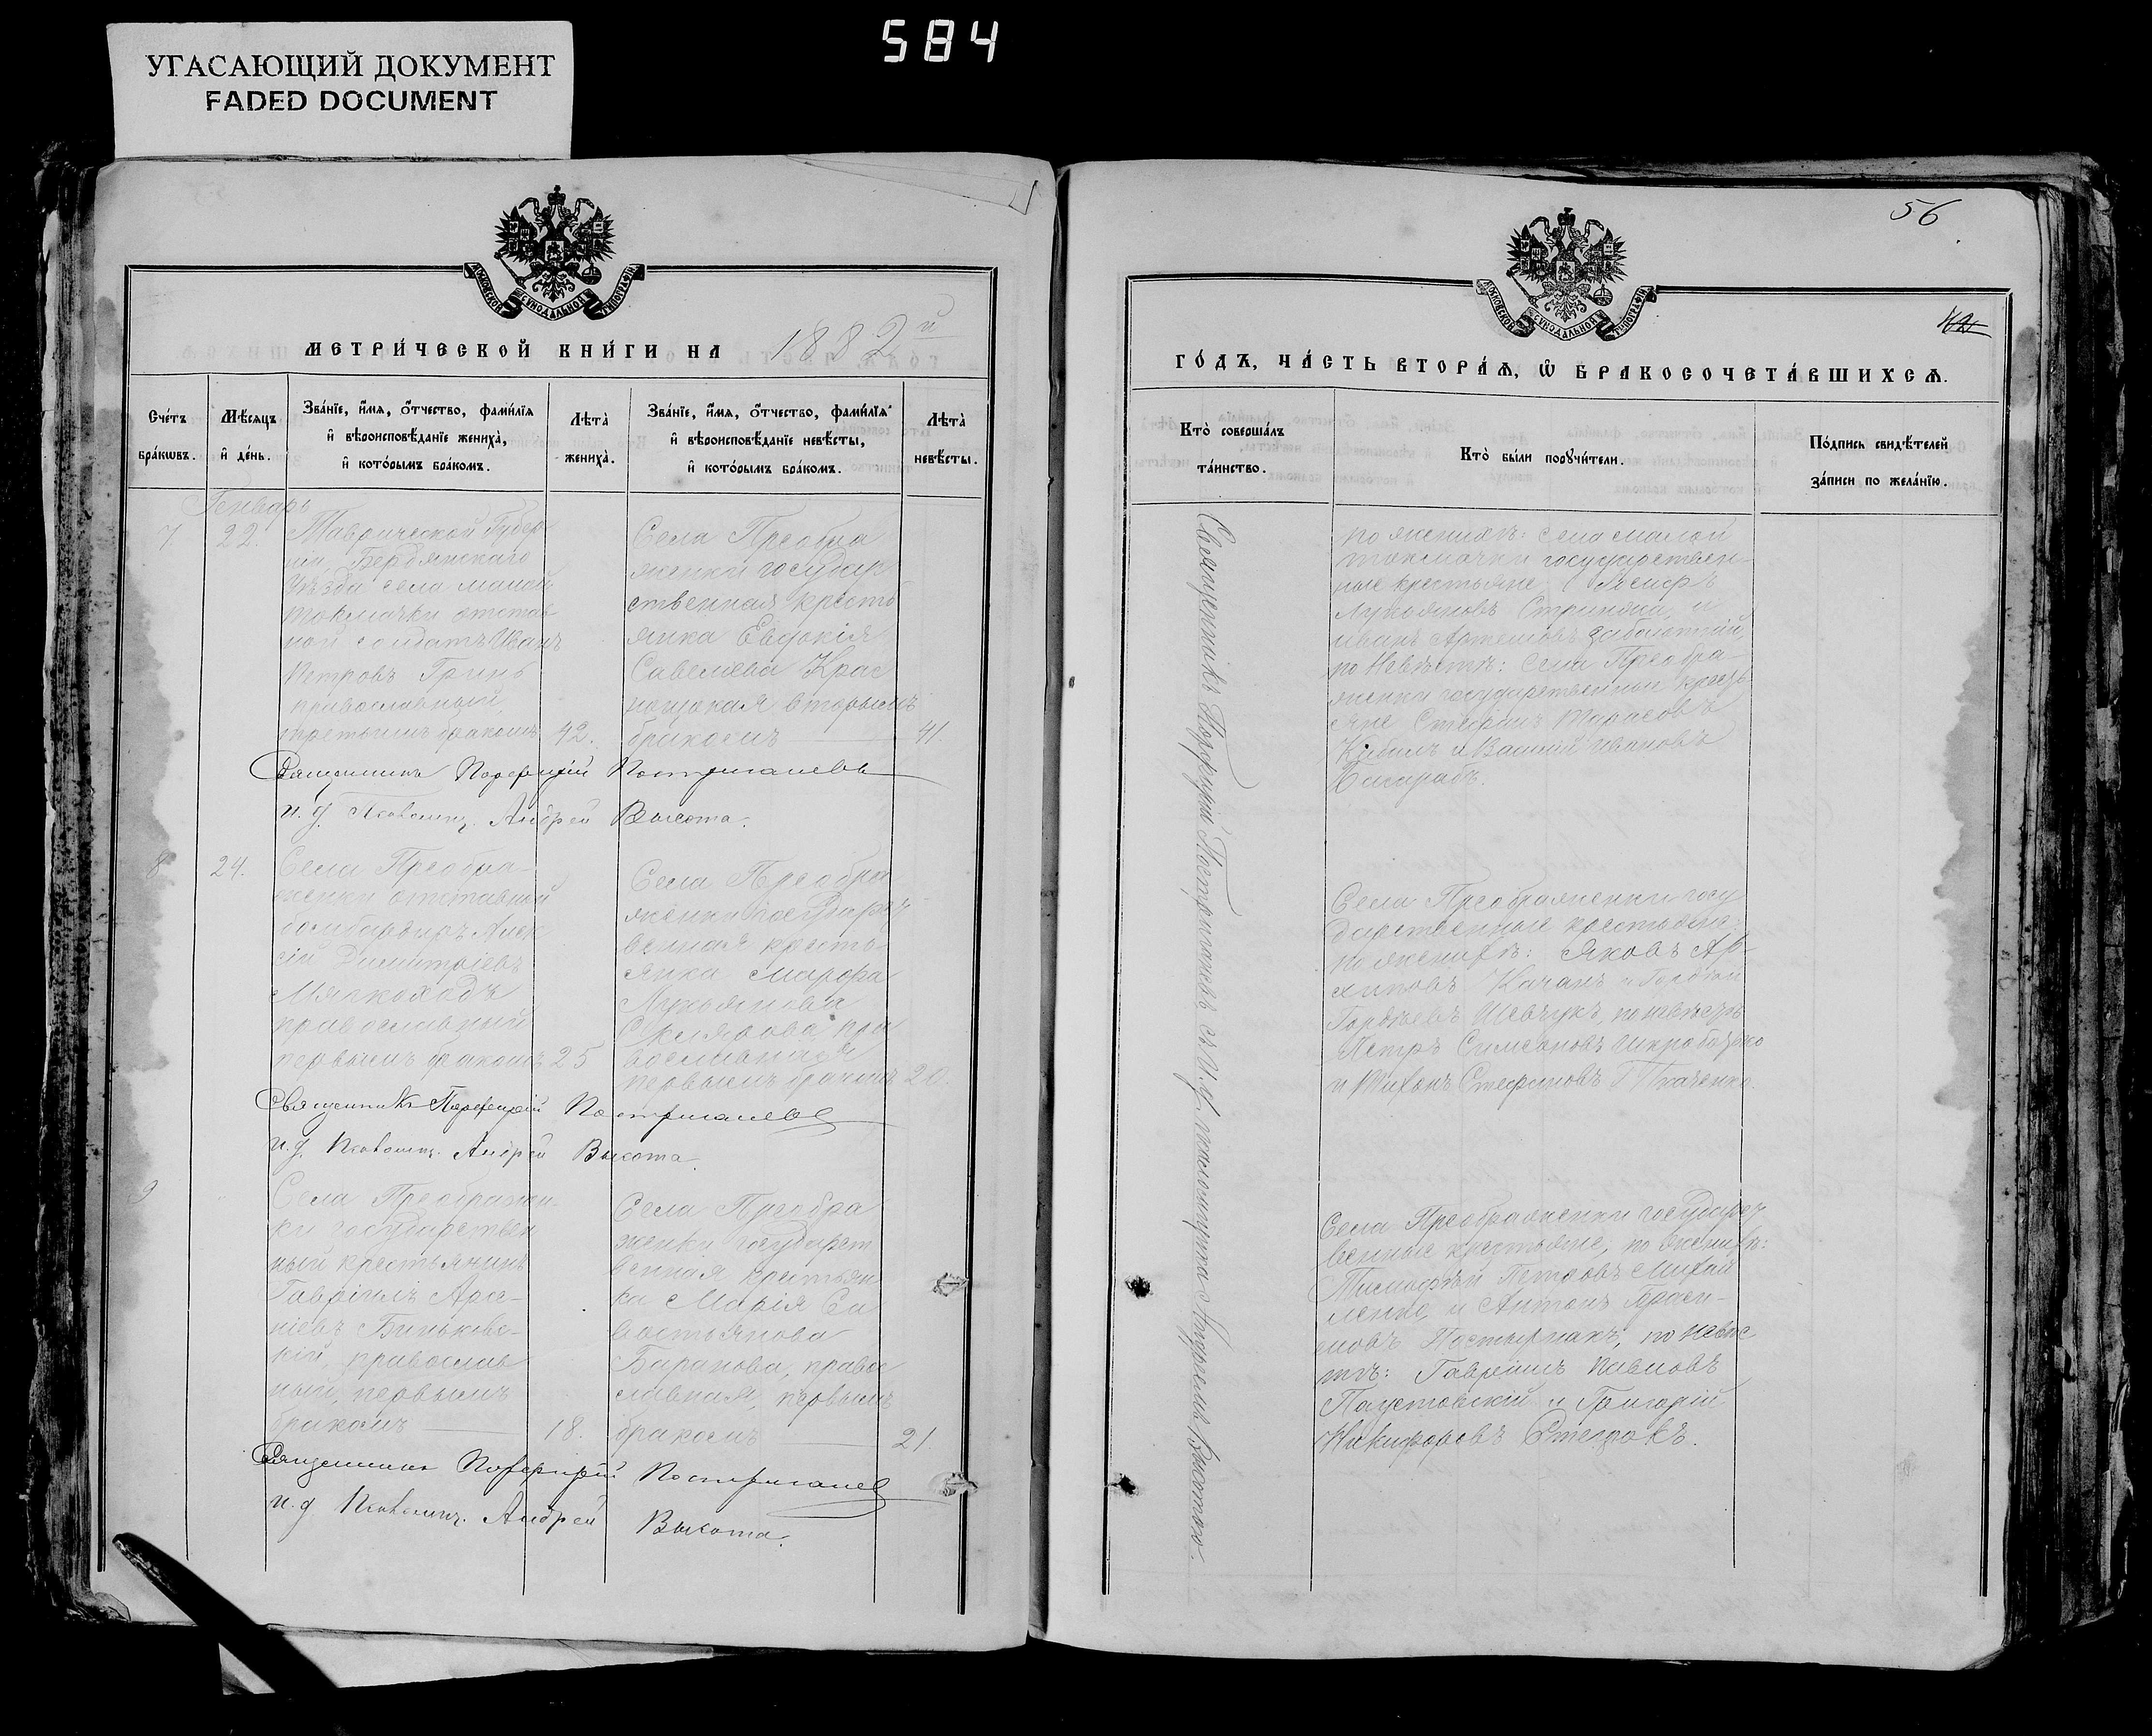 584
УГАСАЮЩИЙ ДОКУМЕНТ
FADED DOCUMENT
МОСКОВСКОЙ СѴНОДАЛЬНОЙ ТИПОГРАФІИ
МЕТРИ́ЧЕСКОЙ КНИ́ГИ НА 1882 й
Сче́тъ бра́кѡвъ.
Мѣ́сяцъ и҆ де́нь.
Зва́нїе, и҆́мя, ѻ҆́тчество, фами́лїя
и҆ вѣроисповѣ́данїе жениха̀,
и҆ кото́рымъ бра́комъ.
Лѣ́та жениха̀.
Зва́нїе, и҆́мя, ѻ҆́тчество, фами́лїя
и҆ вѣроисповѣ́данїе невѣ́сты,
и҆ кото́рымъ бра́комъ.
Лѣ́та невѣ́сты.
Генварь
7
22.
Таврической Губер-
ніи, Бердянскаго
Уѣзда села малой
токмачки отстав
ной солдатъ Иванъ
Петровъ Гринь
православный
третьимъ бракомъ
42.
Села Преобра
женки государ
ственная кресть
янка Евдокія
Савелиева Крас
нощокая вторымъ
бракомъ
41.
Священникъ Порфирій Постригачевъ
и. д. Псаломщ. Андрей Высота.
8
24.
Села Преобра-
женки отставной
бомбардиръ Алек
сій Димитріевъ
Мягкоходъ
православный
первымъ бракомъ
25
Села Преобра
женки государст
венная кресть-
янка Марфа
Лукьянова
Склярова, пра
вославная
первымъ бракомъ
20.
Священникъ Порфирій Постригачевъ
и. д. Псаломщ. Андрей Высота.
9
Села Преображен-
ки государствен
ный крестьянинъ
Гавріилъ Арсе-
ніевъ Биньковс-
кій, православ
ный, первымъ
бракомъ
18.
Села Преобра
женки государст
венная крестьян
ка Марія Са
востьянова
Баранова, правос
лавная, первымъ
бракомъ
21
Священникъ Порфирій Постригачевъ
и. д. Псаломщ. Андрей Высота.
56
МОСКОВСКОЙ СѴНОДАЛЬНОЙ ТИПОГРАФІИ
ГО́ДЪ, ЧА́СТЬ ВТОРА́Я, Ѡ҆ БРАКОСОЧЕТА́ВШИХСЯ.
Кто̀ соверша́лъ та́инство.
Кто̀ бы́ли порꙋчи́тели.
По́дпись свидѣ́телей
за́писи по жела́нїю.
Священникъ Порфирій Постригачевъ съ И. д. псаломщика Андреемъ Высотою.
по женихѣ: села малой
токмачки государствен-
ные крестьяне Іосифъ
Лукояновъ Стринжа и
Иванъ Артемовъ Заболотній,
по Невѣстѣ: села Преобра-
женки государственные кресть
яне Стефанъ Тарасовъ
и Василій Ивановъ
Села Преображенки госу
дарственные крестьяне
по женихѣ: Яковъ Ар-
хиповъ Качанъ и Гордѣй
Гордѣевъ Шевчукъ, по невѣстѣ
Петръ Симеоновъ
и Тихонъ Стефановъ Ткаченко.
Села Преображенки государст
венные крестьяне, по женихѣ:
Тимофей Петровъ Михай
ленко, и Антонъ Гераси-
мовъ Пастернакъ; по невѣс
тѣ: Гавріилъ Павловъ
Паустовскій и Григорій
Никифоровъ Стецокъ.